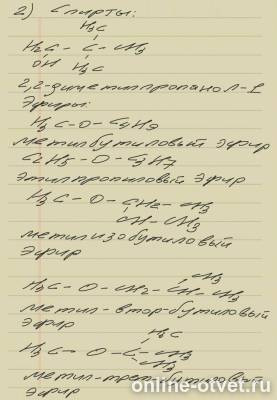 2) Спирты:
H₃C
H₂C - C - CH₃
OH H₃C
2,2-диметилпропанол-1
Эфиры:
H₃C-O-C₄H₉
метилбутиловый эфир
C₂H₅-O-C₃H₇
этилпропиловый эфир
H₃C-O-CH₂-CH₃
CH-CH₃
метилизобутиловый
эфир
CH₃
H₃C-O-CH₂-CH-CH₃
метил-втор-бутиловый
эфир
H₃C
H₃C-O-C-CH₃
CH₃
метил-трет-бутиловый
эфир
online-otvet.ru